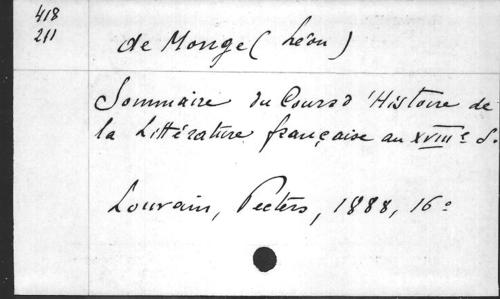 418
211
de Monge (Léon)
Sommaire du Cours d'Histoire de
la Littérature française au XVIIIe S.
Louvain, Peeters, 1888, 16°